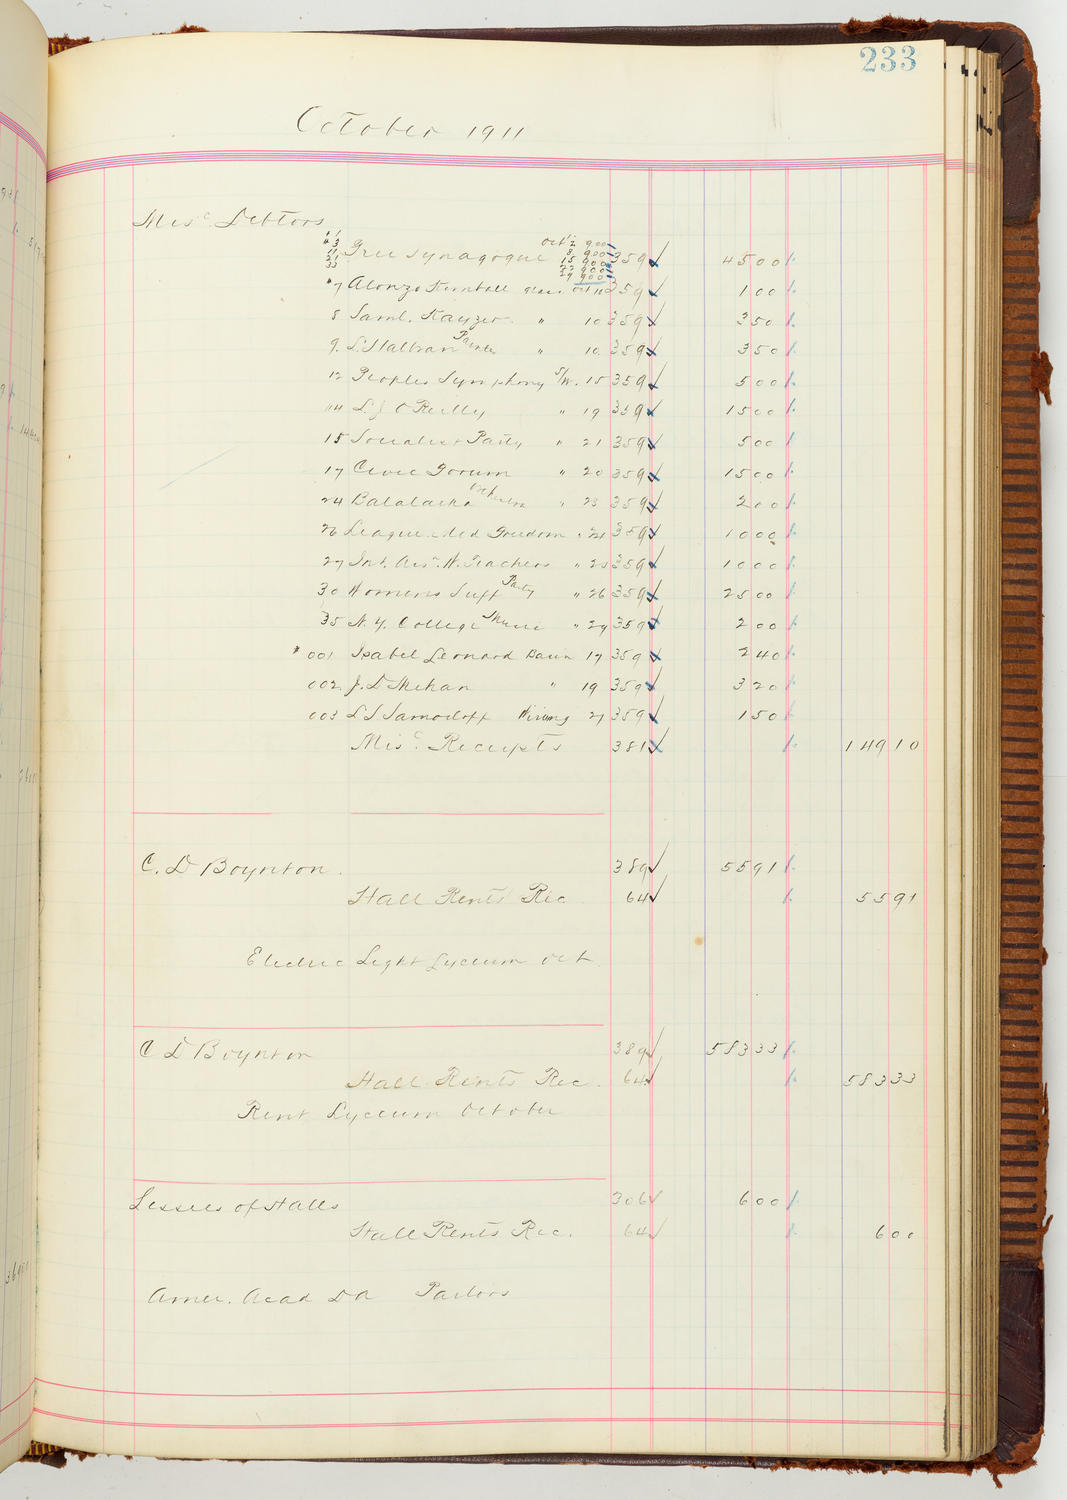 233
October 1911
Misc Debtors
Free Synagogue Oct 2 900 8 900 15 900 22 900 29 900 359 4500
7 Alonzo Kimball glass Oct 10 359 100
8 Saml. Kayzer " 10 359 350
9. S. Halbran " 10. 359 350
12 Peoples Symphony S/W. 15 359 500
14 L. J O'Reilly " 19 359 1500
15 Socialist Party " 21 359 500
17 Civic Forum " 20 359 1500
24 Balalaika Orchestra " 23 359 200
26 League Med Freedom " 359 1000
27 Int. Ass. N. Teachers " 25 359 1000
30 Womens Suff Party " 26 359 2500
35 N. Y. College Music " 29 359 200
001 Isabel Leonard 17 359 240
002. J. D Mehan " 19 359 320
003 L S Samoiloff Wiring 21 359 150
Misc. Receipts 381 14910
C. D Boynton. 389 5591
Hall Rents Rec 64 5591
Electric Light Lyceum Oct
C D Boynton 389 58333
Hall Rents Rec. 64 58333
Rent Lyceum October
Lessees of Halls 306 600
Hall Rents Rec. 64 600
Amer. Acad D A Parlors